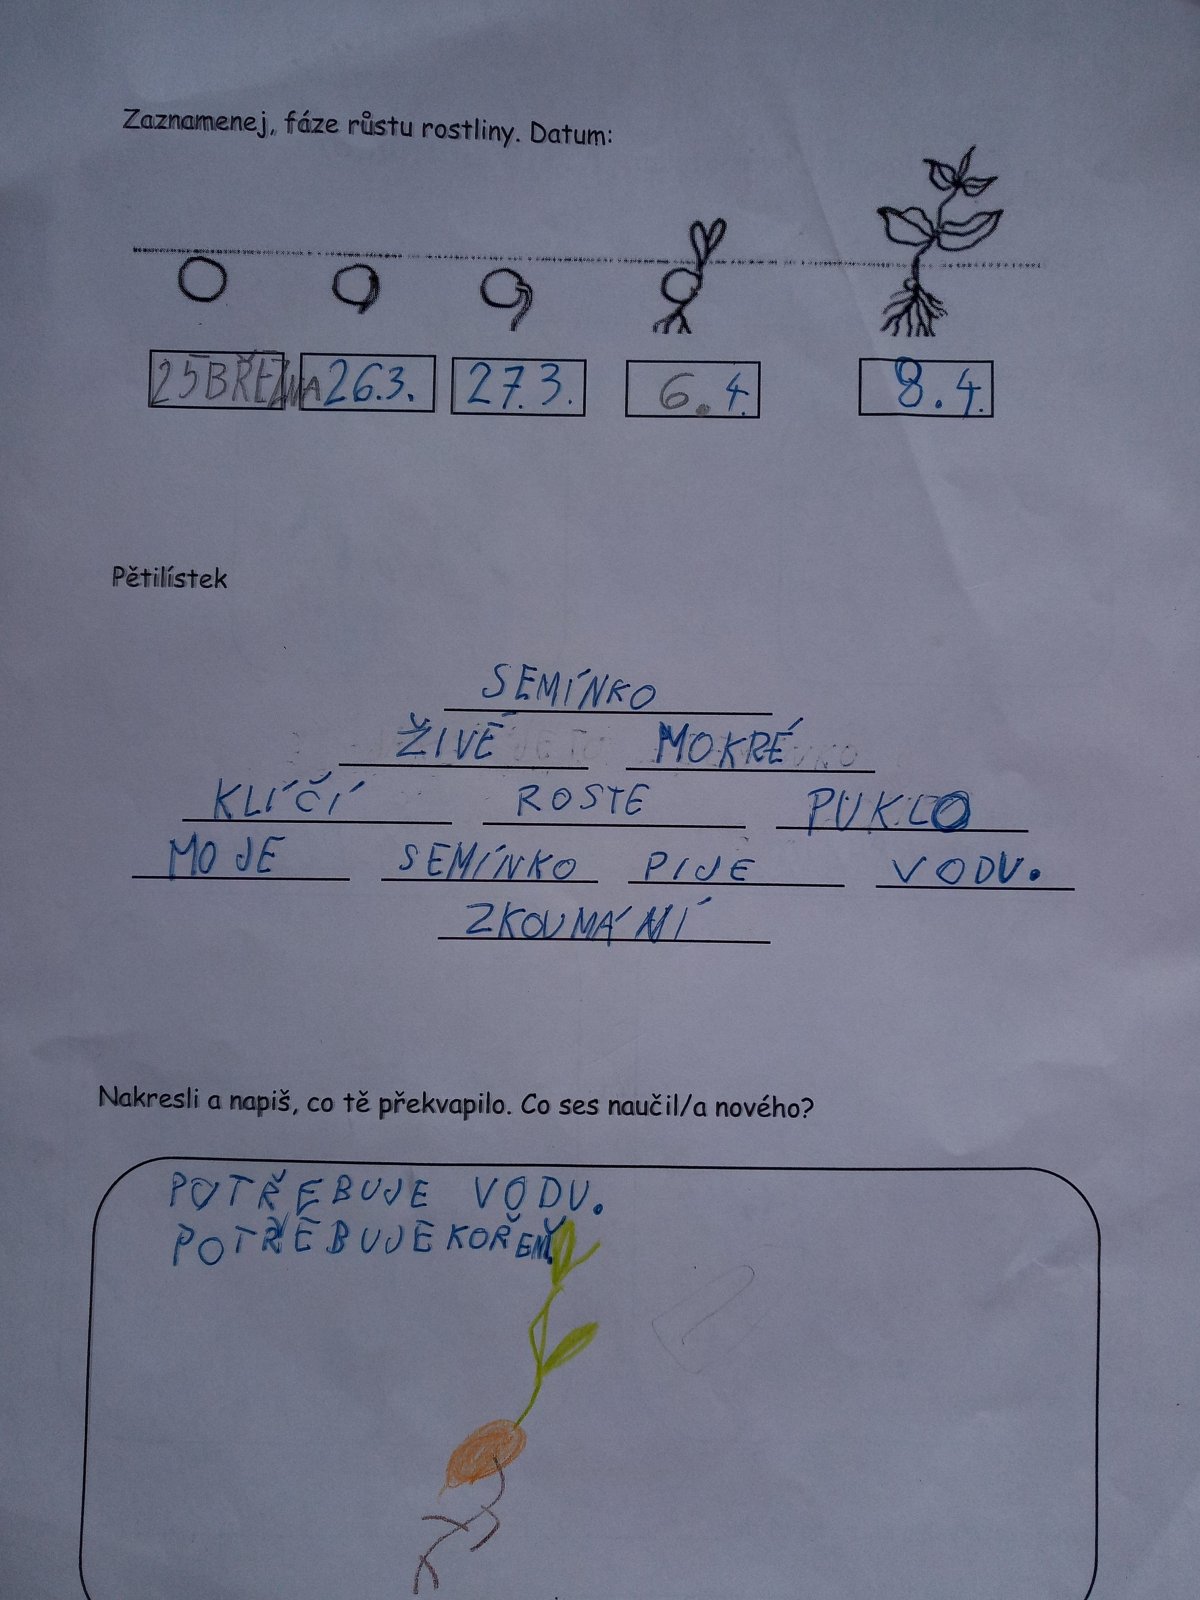 Zaznamenej, fáze růstu rostliny. Datum:
25BŘEZNA 26.3. 27.3. 6.4. 8.4.
Pětilístek
SEMÍNKO
ŽIVÉ MOKRÉ
KLÍČÍ ROSTE PUKLO
MOJE SEMÍNKO PIJE VODU.
ZKOUMÁNÍ
Nakresli a napiš, co tě překvapilo. Co ses naučil/a nového?
POTŘEBUJE VODU.
POTŘEBUJE KOŘEN.